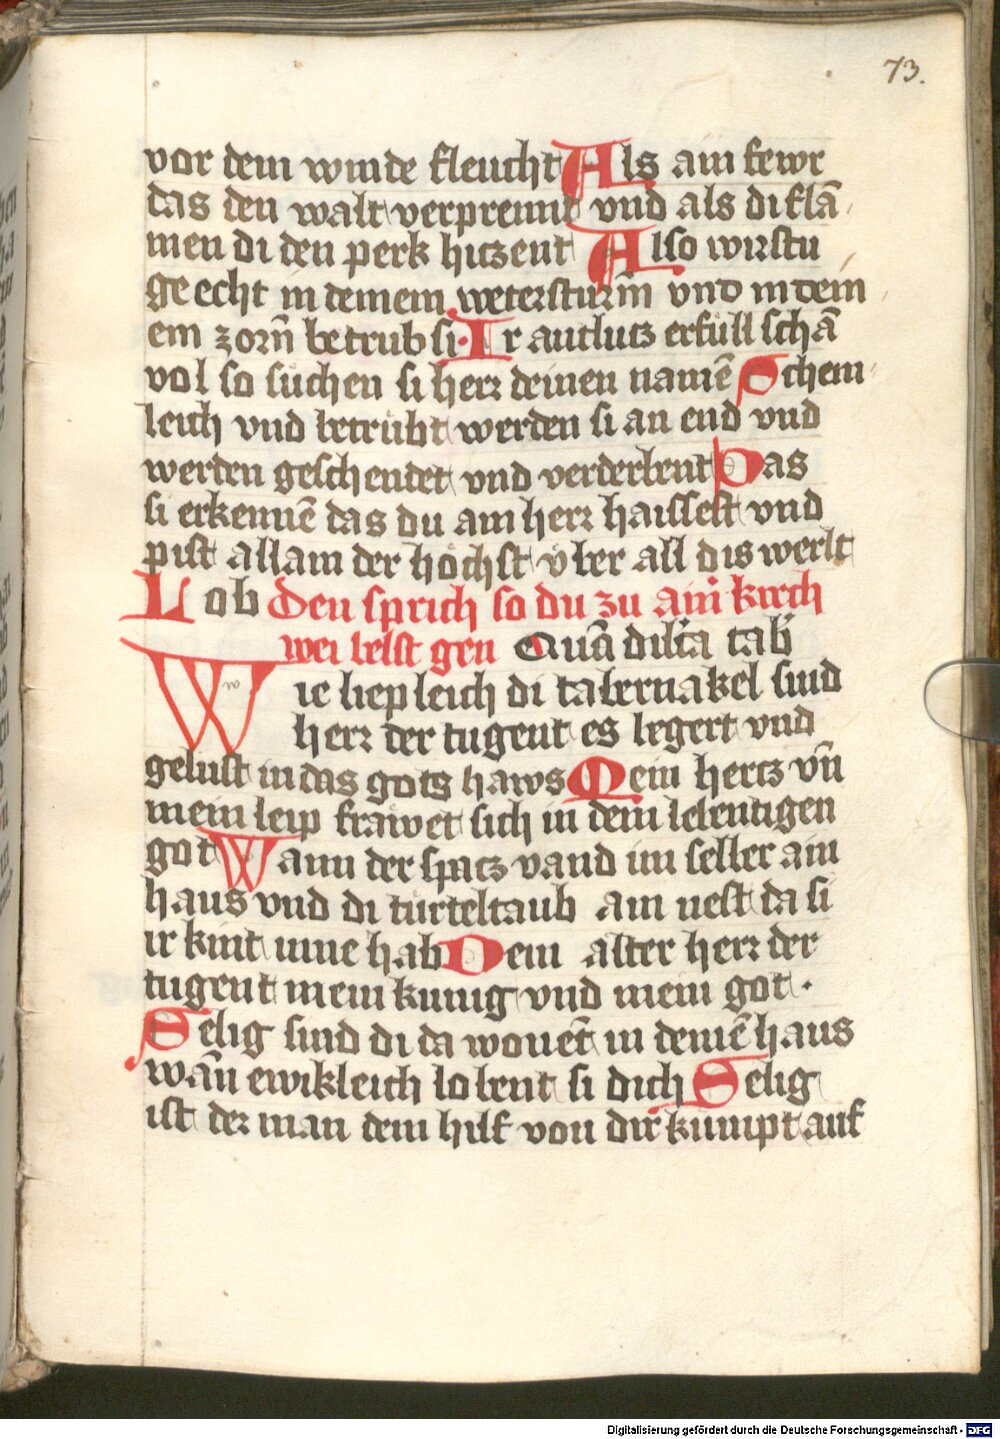 73.
vor dem winde fleucht Als ain fewr
das den walt verprennt vnd als di flā
men di den perk hitzent Also wirstu
geecht in deinem weterstur̄m vnd in dein
em zorn̄ betrub si· Ir antlutz erfull schā
vol so suchen si herr deinen namē Schem
leich vnd betrubt werden si an end vnd
werden geschendet vnd verderbent Das
si erkennē das du ain herr haissest vnd
pist allain der hochst vber all dis werlt
Lob Den sprich so du zu aīn kirch
wei belst gen Quā dilc̄a tab̄
w
Wie liepleich di tabernakel sind
herr der tugent es begert vnd
gelust in das gots haws Mein hertz vn̄
mein leip frawet sich in dem lebentigen
got Wann der spatz vand im selber ain
haus vnd di turteltaub ain nest da si
ir kint inne hab Dein alter herr der
tugent mein kunig vnd mein got ·
Selig sind di da wonēt in deinē haus
wan̄ ewikleich lobent si dich Selig
ist der man dem hilf von dir kumpt auf
Digitalisierung gefördert durch die Deutsche Forschungsgemeinschaft - DFG